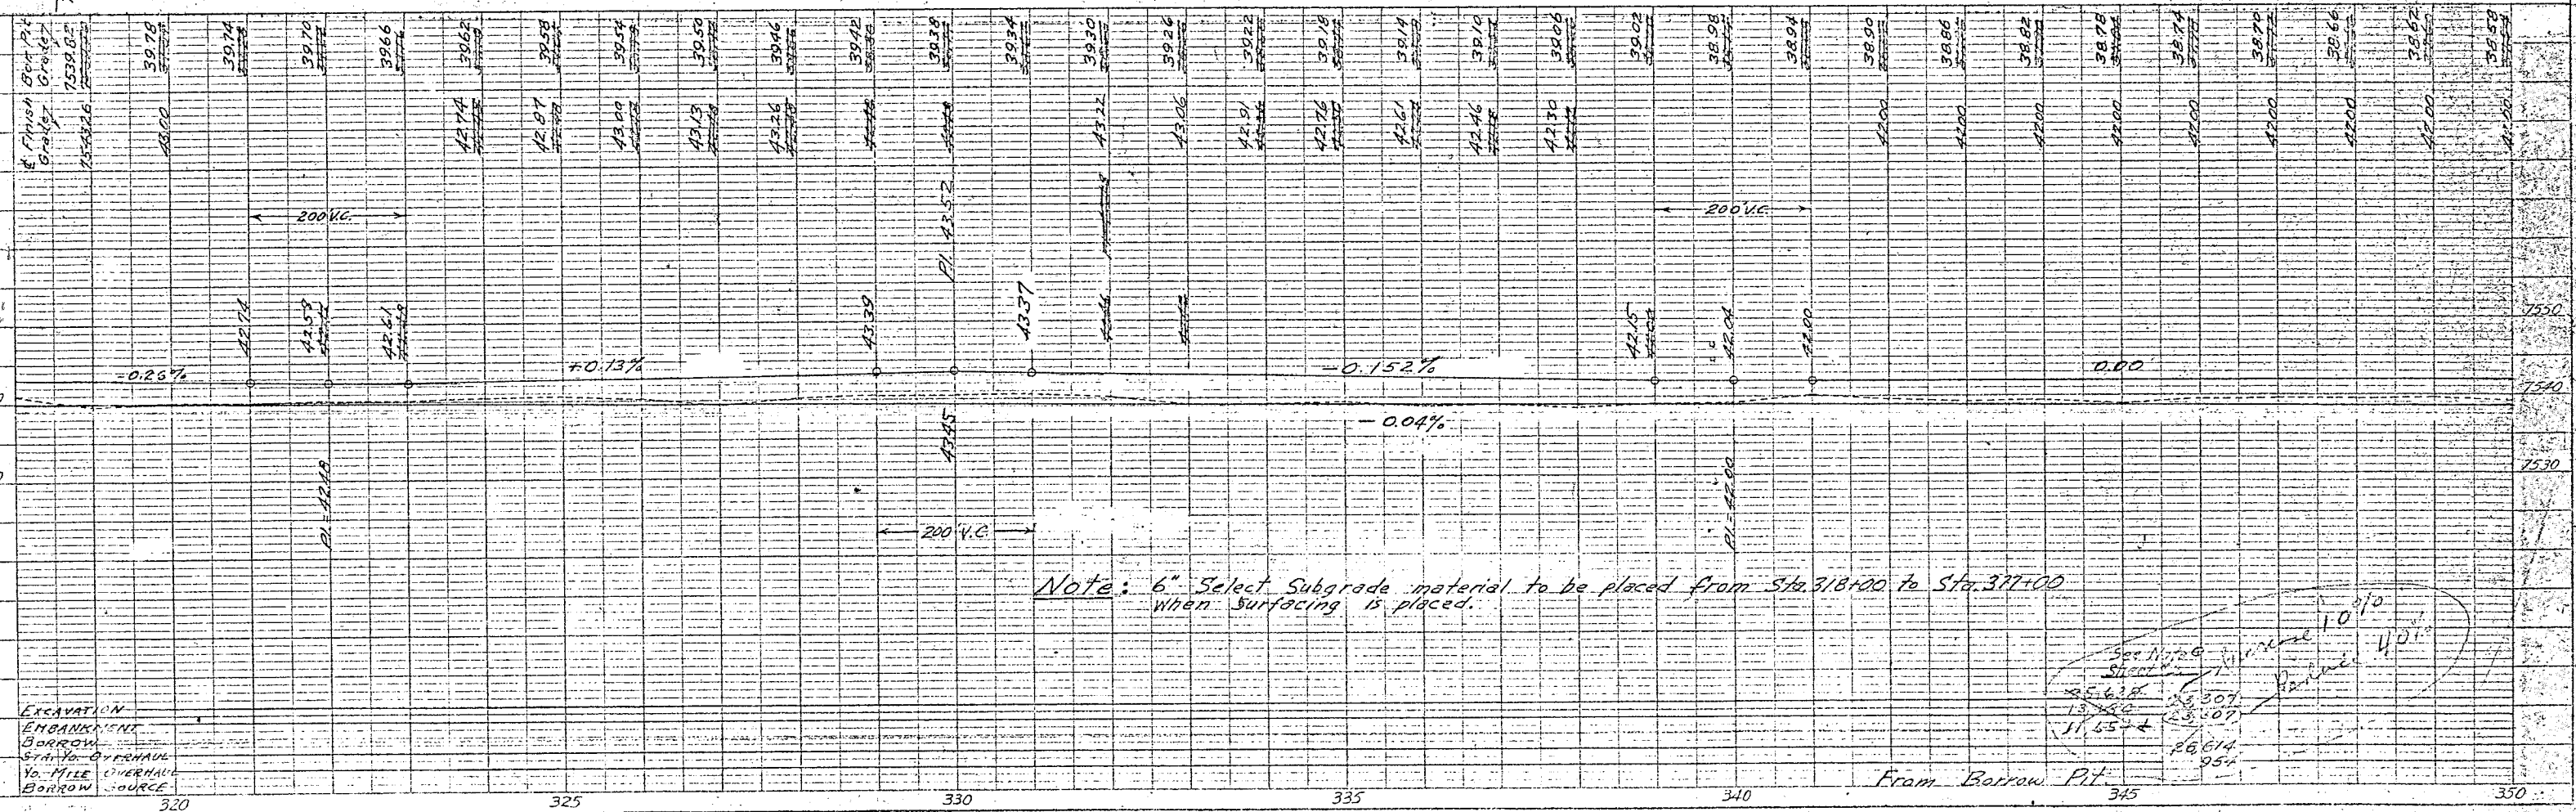 Bor. Pit
Grade
7539.82 39.78 39.74 39.70 39.66 39.62 39.58 39.54 39.50 39.46 39.42 39.38 39.34 39.30 39.26 39.22 39.18 39.14 39.10 39.06 39.02 38.98 38.94 38.90 38.86 38.82 38.78 38.74 38.70 38.66 38.62 38.58
₠ Finish
Grade
7543.26 43.00 42.74 42.87 43.00 43.13 43.26 43.22 43.06 42.91 42.76 42.61 42.46 42.30 42.00 42.00 42.00 42.00 42.00 42.00 42.00 42.00 42.00
200' V.C. 200' V.C.
P.I. 43.52
42.74 42.59 42.61 43.39 43.37 42.15 42.04 42.00
7550
-0.26% +0.13% -0.152% 0.00
7540
-0.04%
43.45
P.I.=42.48 P.I.=42.00
7530
200' V.C.
Note: 6" Select Subgrade material to be placed from Sta. 318+00 to Sta. 377+00
when Surfacing is placed.
See Note
Increase 10%
Reduce 40%
26,614
EXCAVATION
EMBANKMENT
BORROW
STA. YD. OVERHAUL
YD. MILE OVERHAUL
BORROW SOURCE
From Borrow Pit
320 325 330 335 340 345 350